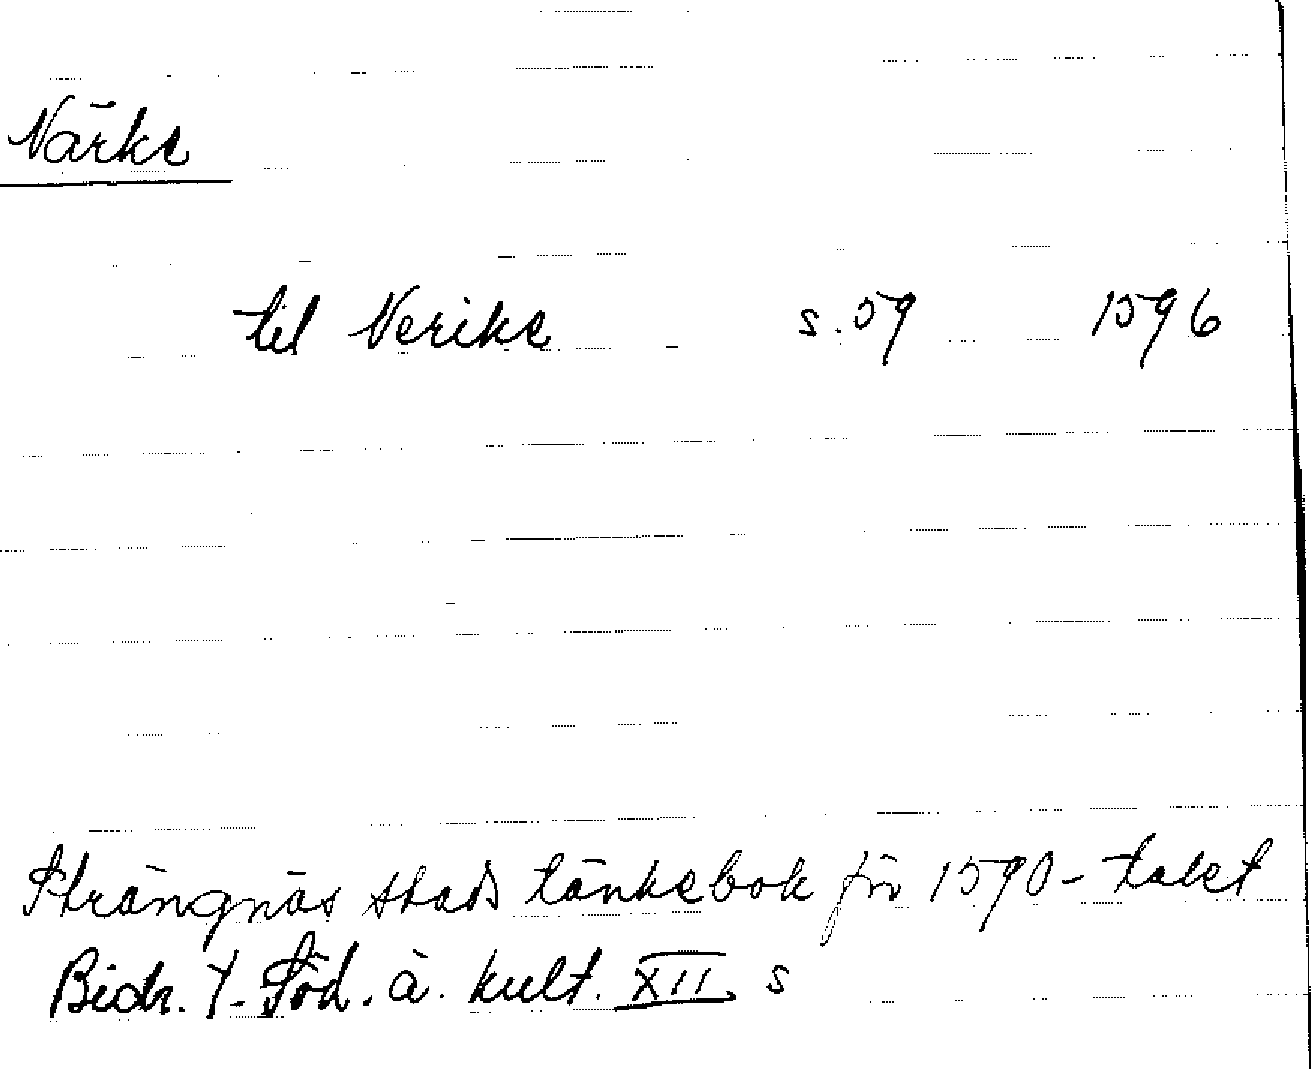 Närke
til Nerike s. 59 1596
Strängnäs stads tänkebok för 1590-talet
Bidr. t. Söd. ä. kult. XII s